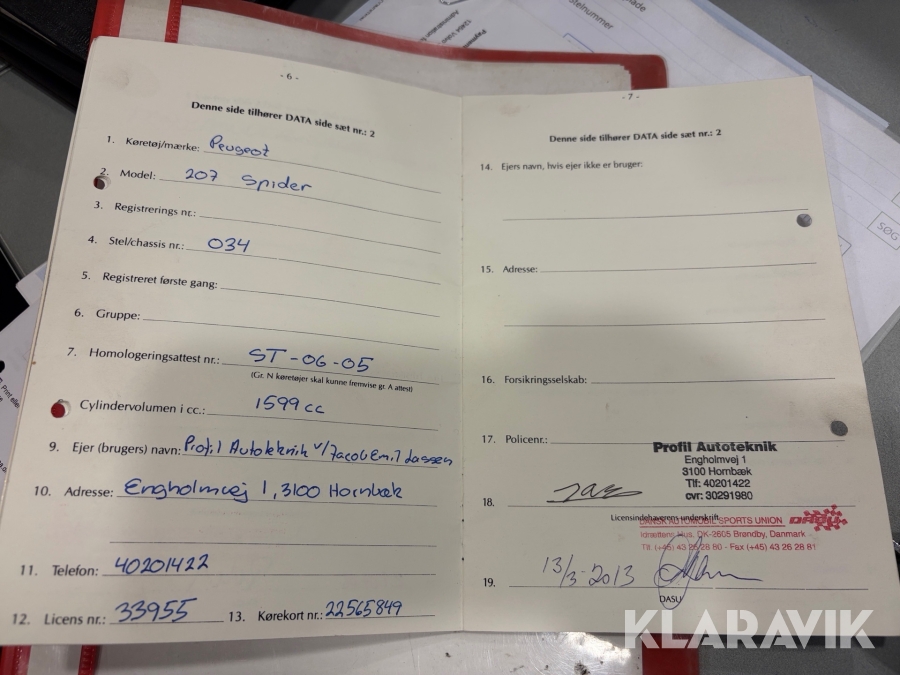 - 6 -
Denne side tilhører DATA side sæt nr.: 2
1. Køretøj/mærke: Peugeot
2. Model: 207 Spider
3. Registrerings nr.:
4. Stel/chassis nr.: 034
5. Registreret første gang:
6. Gruppe:
7. Homologeringsattest nr.: ST-06-05
(Gr. N køretøjer skal kunne fremvise gr. A attest)
Cylindervolumen i cc.: 1599 cc
9. Ejer (brugers) navn: Profil Autoteknik v/Jacob Emil Lassen
10. Adresse: Engholmvej 1, 3100 Hornbæk
11. Telefon: 40201422
12. Licens nr.: 33955 13. Kørekort nr.: 22565849
- 7 -
Denne side tilhører DATA side sæt nr.: 2
14. Ejers navn, hvis ejer ikke er bruger:
15. Adresse:
16. Forsikringsselskab:
17. Policenr.:
Profil Autoteknik
Engholmvej 1
3100 Hornbæk
Tlf: 40201422
cvr: 30291980
18.
Licensindehaverens underskrift
DANSK AUTOMOBIL SPORTS UNION DASU
Idrættens Hus, DK-2605 Brøndby, Danmark
Tlf. (+45) 43 26 28 80 - Fax (+45) 43 26 28 81
19. 13/3-2013
DASU
stelnummer
SØG
KLARAVIK